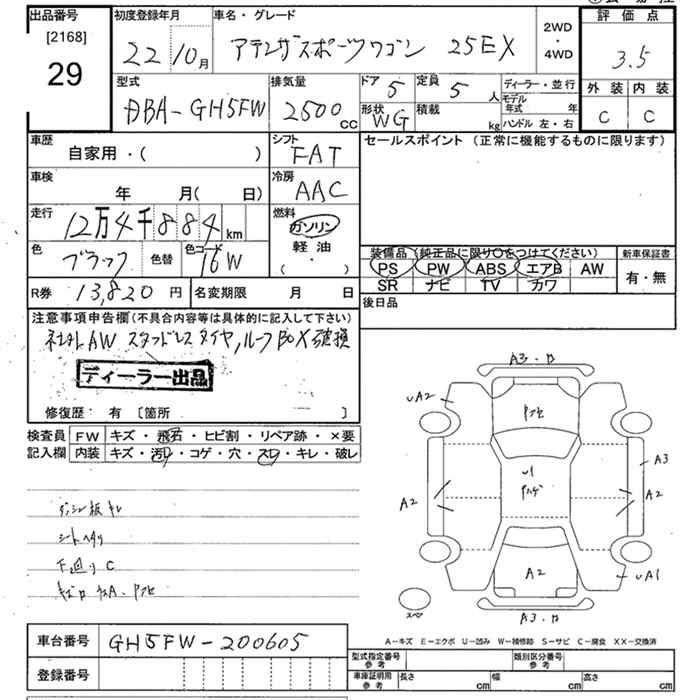 出品番号
[2168]
29
初度登録年月
22 10月
車名・グレード
アテンザスポーツワゴン 25EX
2WD
・
4WD
評価点
3.5
外装 内装
C C
型式
DBA-GH5FW
排気量
2500cc
ドア 5
形状 WG
定員 5人
積載 kg
ディーラー・並行
モデル年式 年
ハンドル 左・右
車歴
自家用・( )
シフト
FAT
セールスポイント (正常に機能するものに限ります)
車検
年 月( 日)
冷房
AAC
走行
12万4千884km
燃料
ガソリン
軽油
( ・ )
色
ブラック
色替
色コード
16W
装備品 (純正品に限り○をつけてください)
PS PW ABS エアB AW
SR ナビ TV カワ
新車保証書
有・無
R券 13,820円
名変期限 月 日
後日品
注意事項申告欄(不具合内容等は具体的に記入して下さい)
社外AW スタッドレスタイヤ,ルーフBOX破損
ディーラー出品
修復歴: 有 [箇所 ]
検査員 FW キズ・飛石・ヒビ割・リペア跡・×要
記入欄 内装 キズ・汚レ・コゲ・穴・スレ・キレ・破レ
シートヘタリ
下廻りC
A3・B
UA2
A3
U1
A2
A2
A2
UA1
スペア
A3・B
A-キズ E-エクボ U-凹み W-補修跡 S-サビ C-腐食 XX-交換済
車台番号 GH5FW-200605
登録番号
型式指定番号 参考
類別区分番号 参考
車庫証明用 参考
長さ cm 幅 cm 高さ cm